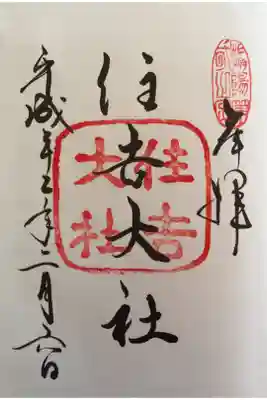 奉拝
住吉大社
住吉
大社
平成廿五年二月六日